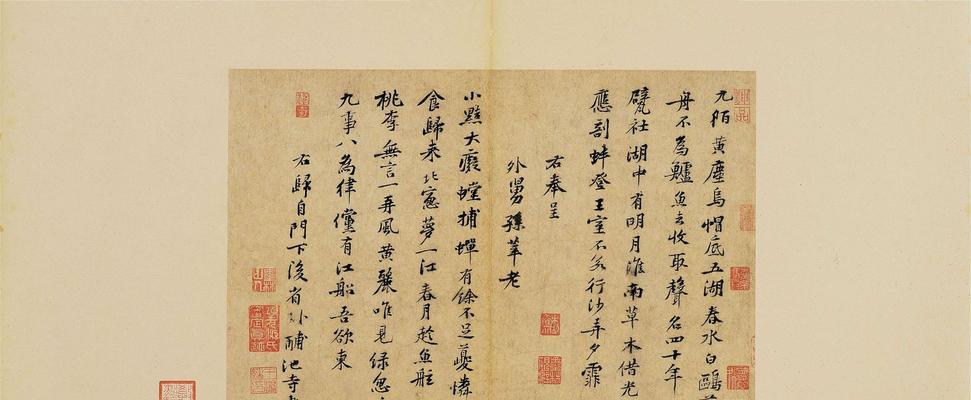 九陌黃塵烏帽底五湖春水白鷗
舟不為鱸魚去收取聲名四十年
甓社湖中有明月淮南草木借光
應剖蚌登王室不若行沙弄夕霏
右奉呈
外舅孫莘老
小黠大癡螳捕蟬有餘不足夔憐
食歸来北窓夢一江春月趁魚舩
桃李無言一再風黃鸝唯見綠怱
九事八為律儻有江船吾欲東
右歸自門下後省卧酺池寺